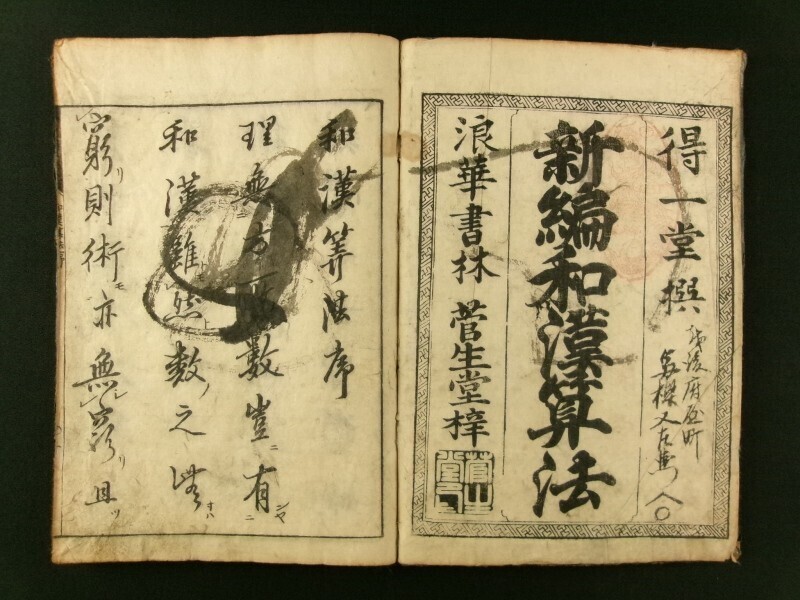 得一堂撰
新編和漢算法
浪華書林 菅生堂梓
和漢筭法序
理無方所數豈有
和漢雖然數之
窮則術亦無窮且